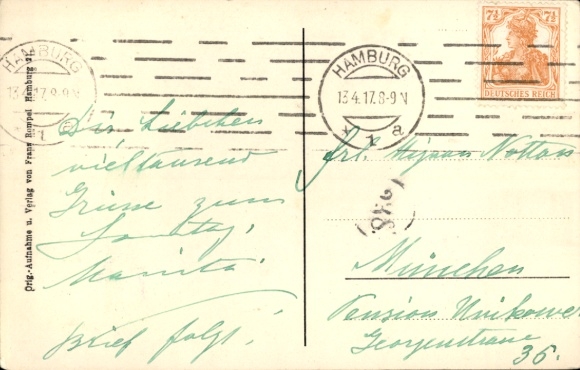 Orig.-Aufnahme u. Verlag von Franz Rompel Hamburg
HAMBURG
13.4.17.8-9 N
1
HAMBURG
13.4.17.8-9 N
* 1 a
7½ 7½
DEUTSCHES REICH
Dir, Liebchen
vieltausend
Grüsse zum
Sonntag,
Brief folgt!
Frl.
München
Pension
Georgenstrasse
36.